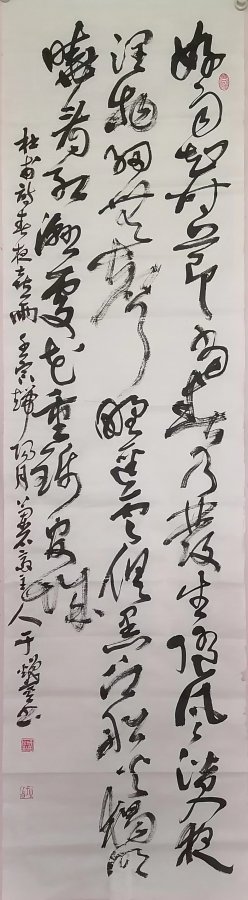 好雨知時節當春乃發生隨風潛入夜
潤物細無聲野徑雲俱黑江船火獨明
曉看紅濕處花重錦官城
杜甫詩春夜喜雨壬寅陽月人于書